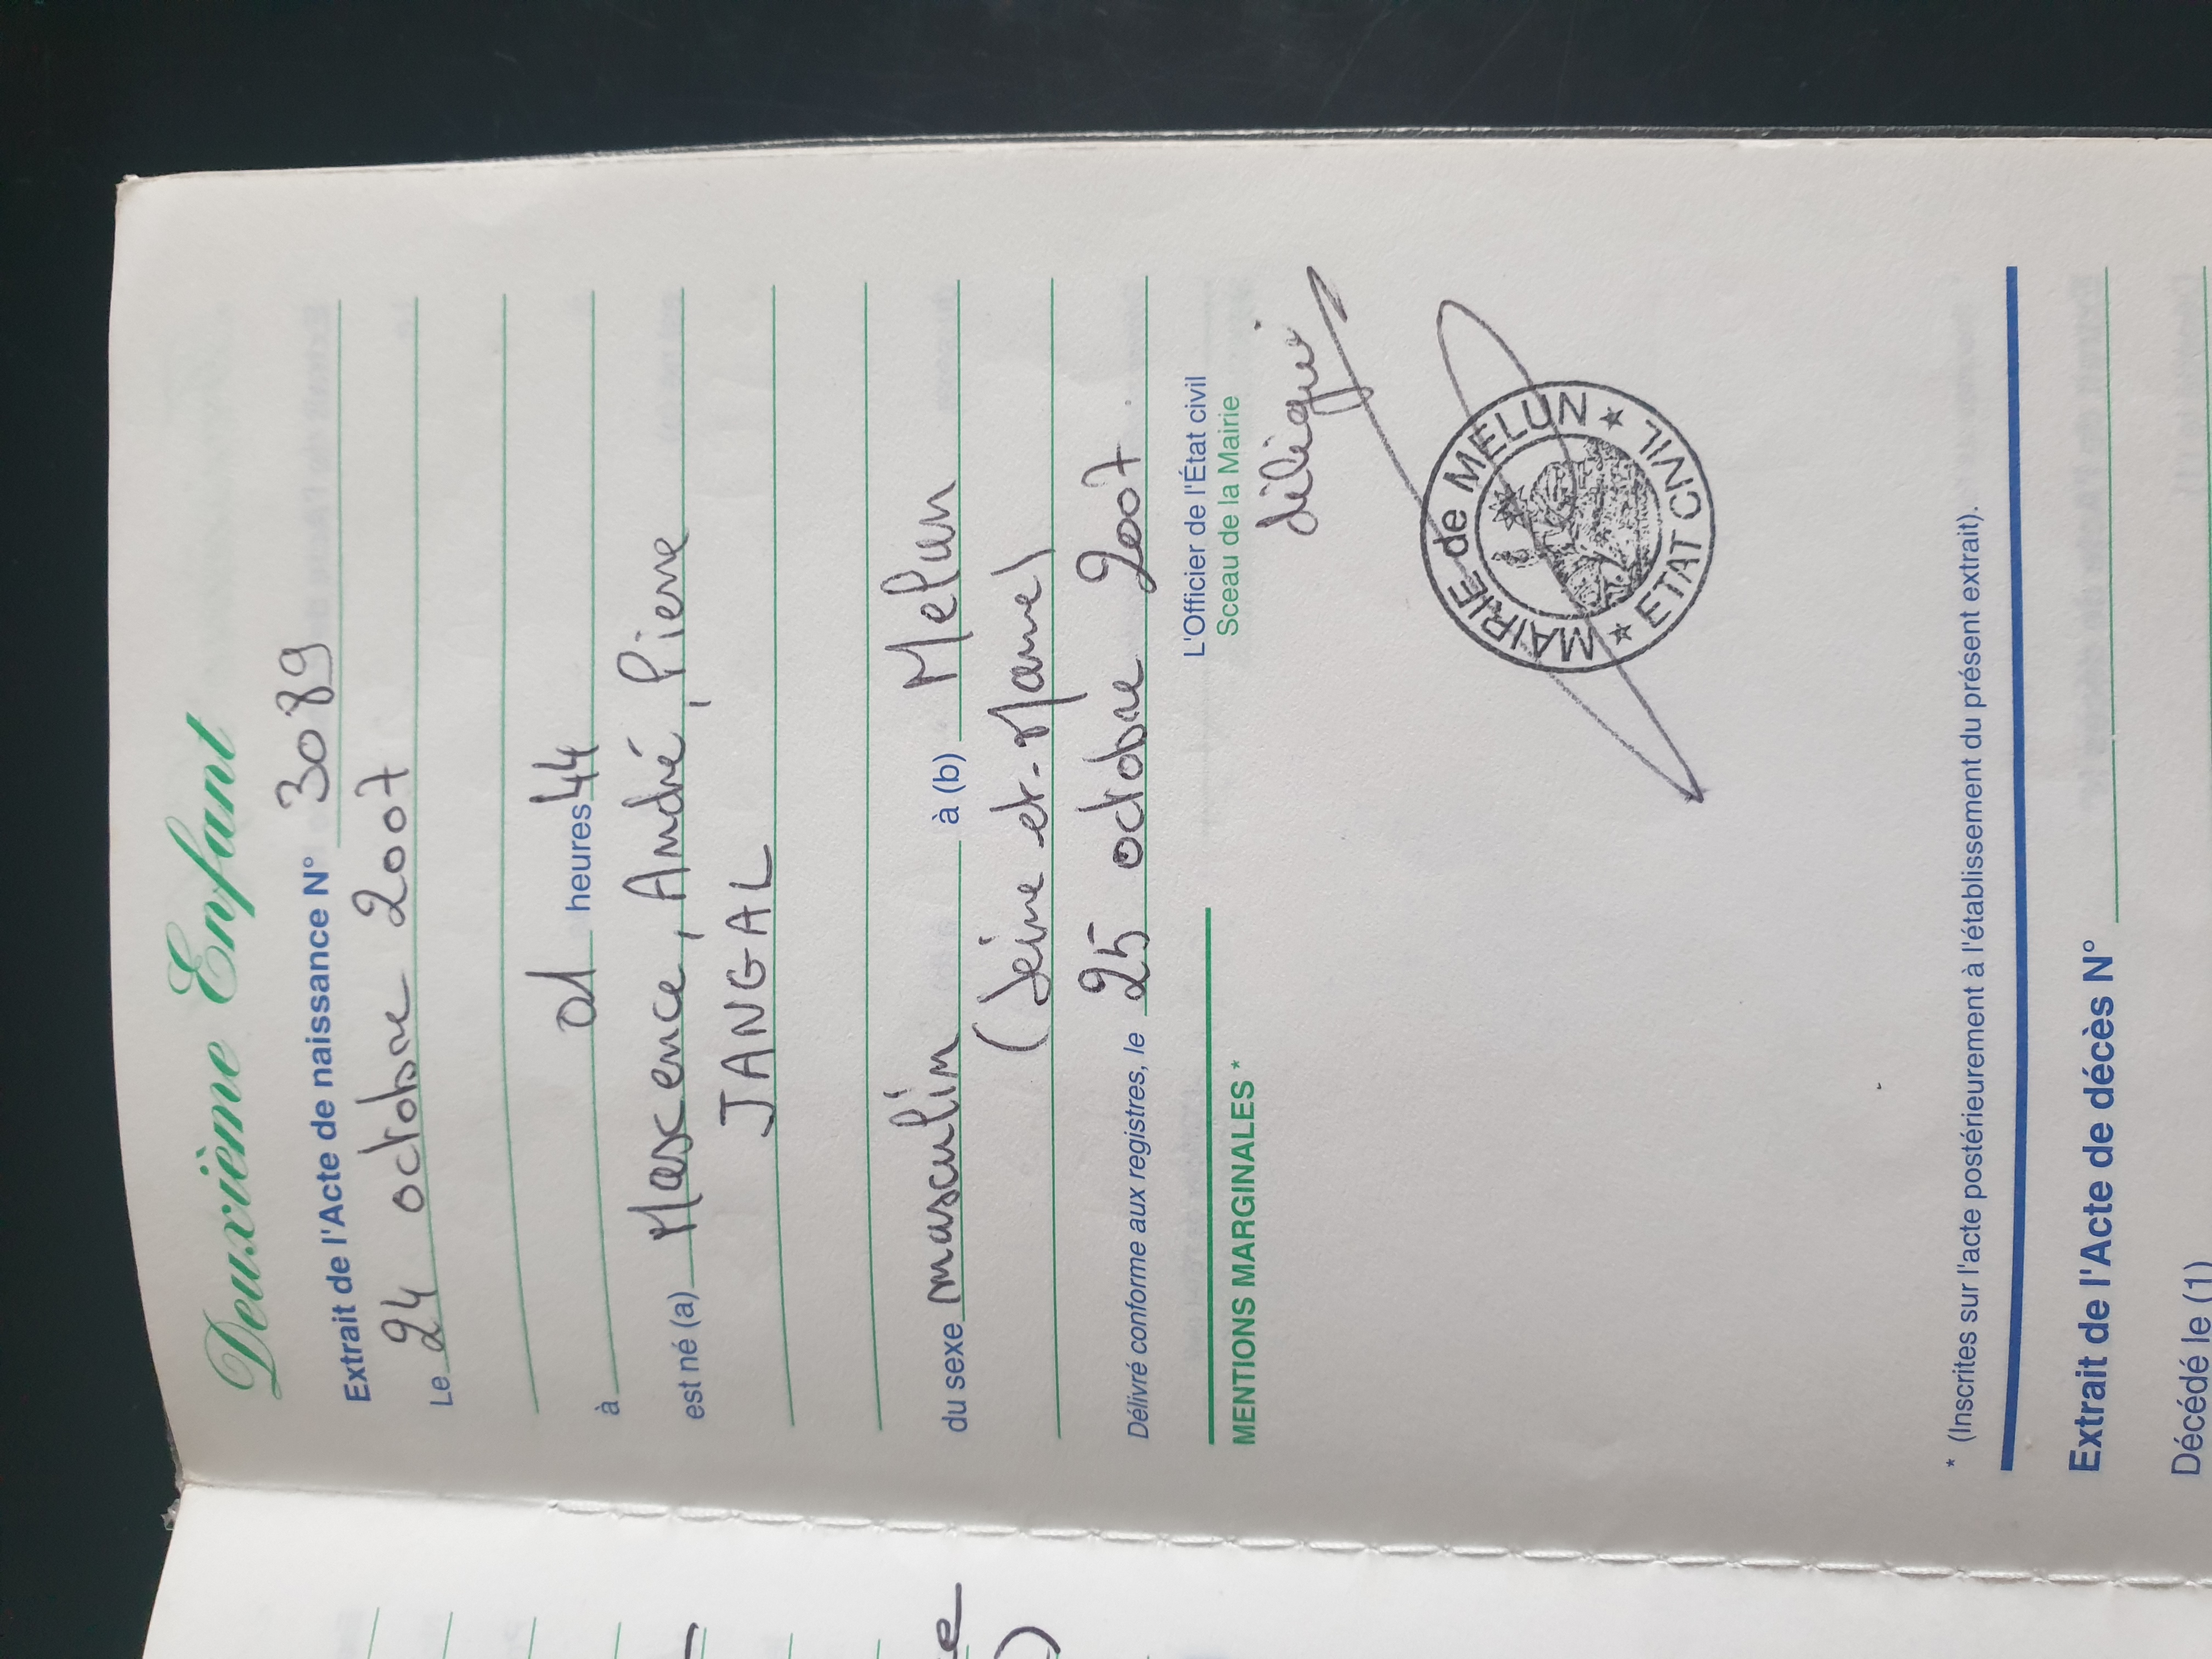 Deuxième Enfant
Extrait de l'Acte de naissance N° 3089
Le 24 octobre 2007
à 01 heures 44
est né (a) Maxence, André, Pierre
JANGAL
du sexe masculin à (b) Melun
(Seine-et-Marne)
Délivré conforme aux registres, le 25 octobre 2007
L'Officier de l'État civil
Sceau de la Mairie
délégué
MENTIONS MARGINALES *
MAIRIE de MELUN
★ ETAT CIVIL ★
* (Inscrites sur l'acte postérieurement à l'établissement du présent extrait).
Extrait de l'Acte de décès N°
Décédé le (1)